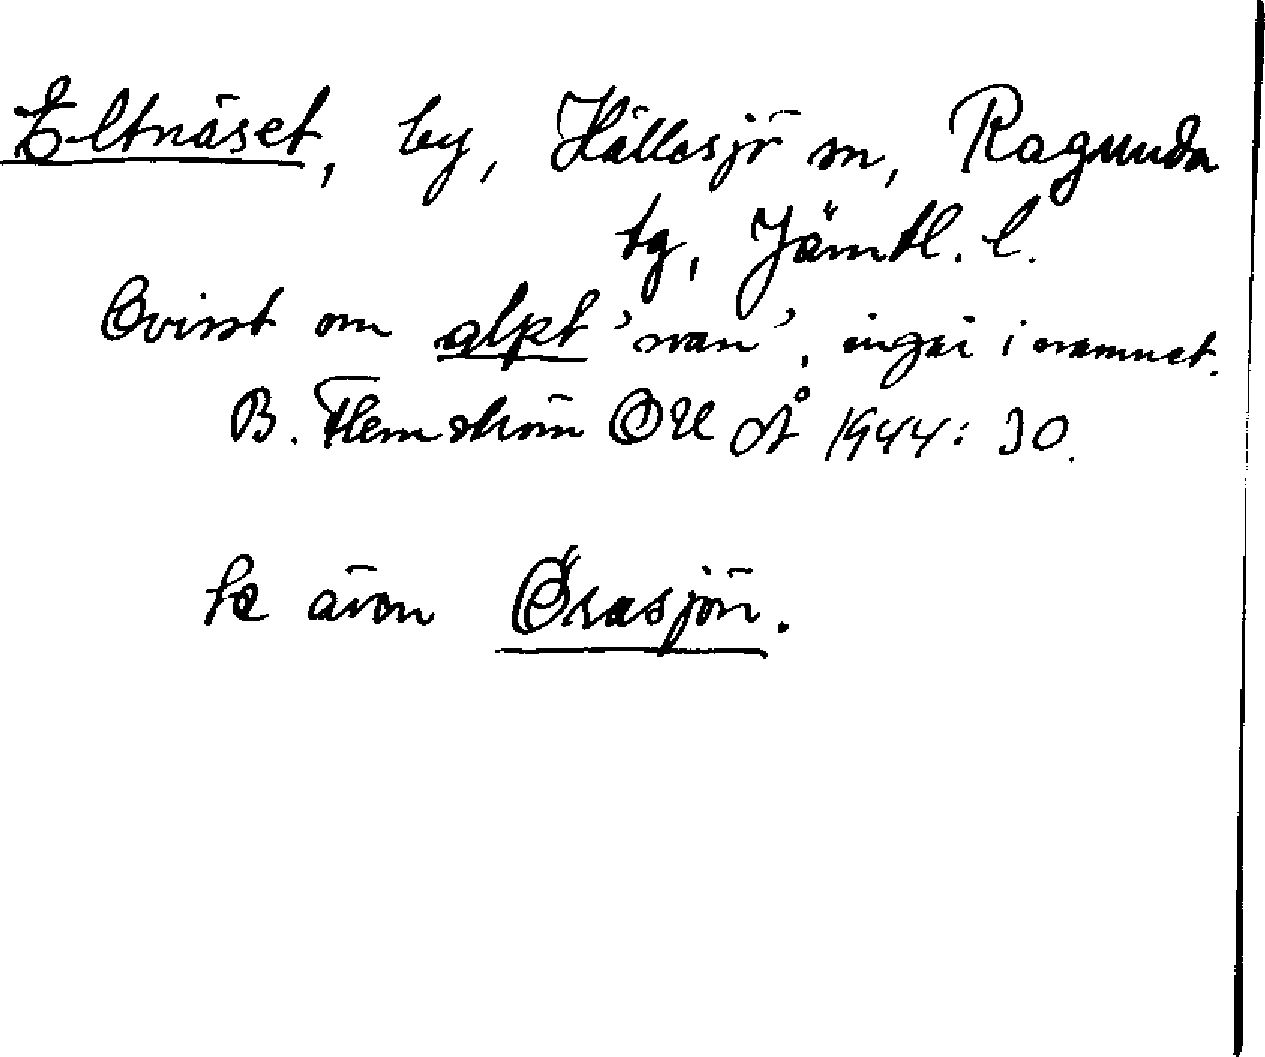 Eltnäset, by, Hällesjö sn, Ragunda
tg, Jämtl. l.
Ovisst om alpt 'svan', ingår i namnet.
B. Flemström OUÅ 1944: 30.
Se även Öravsjön.